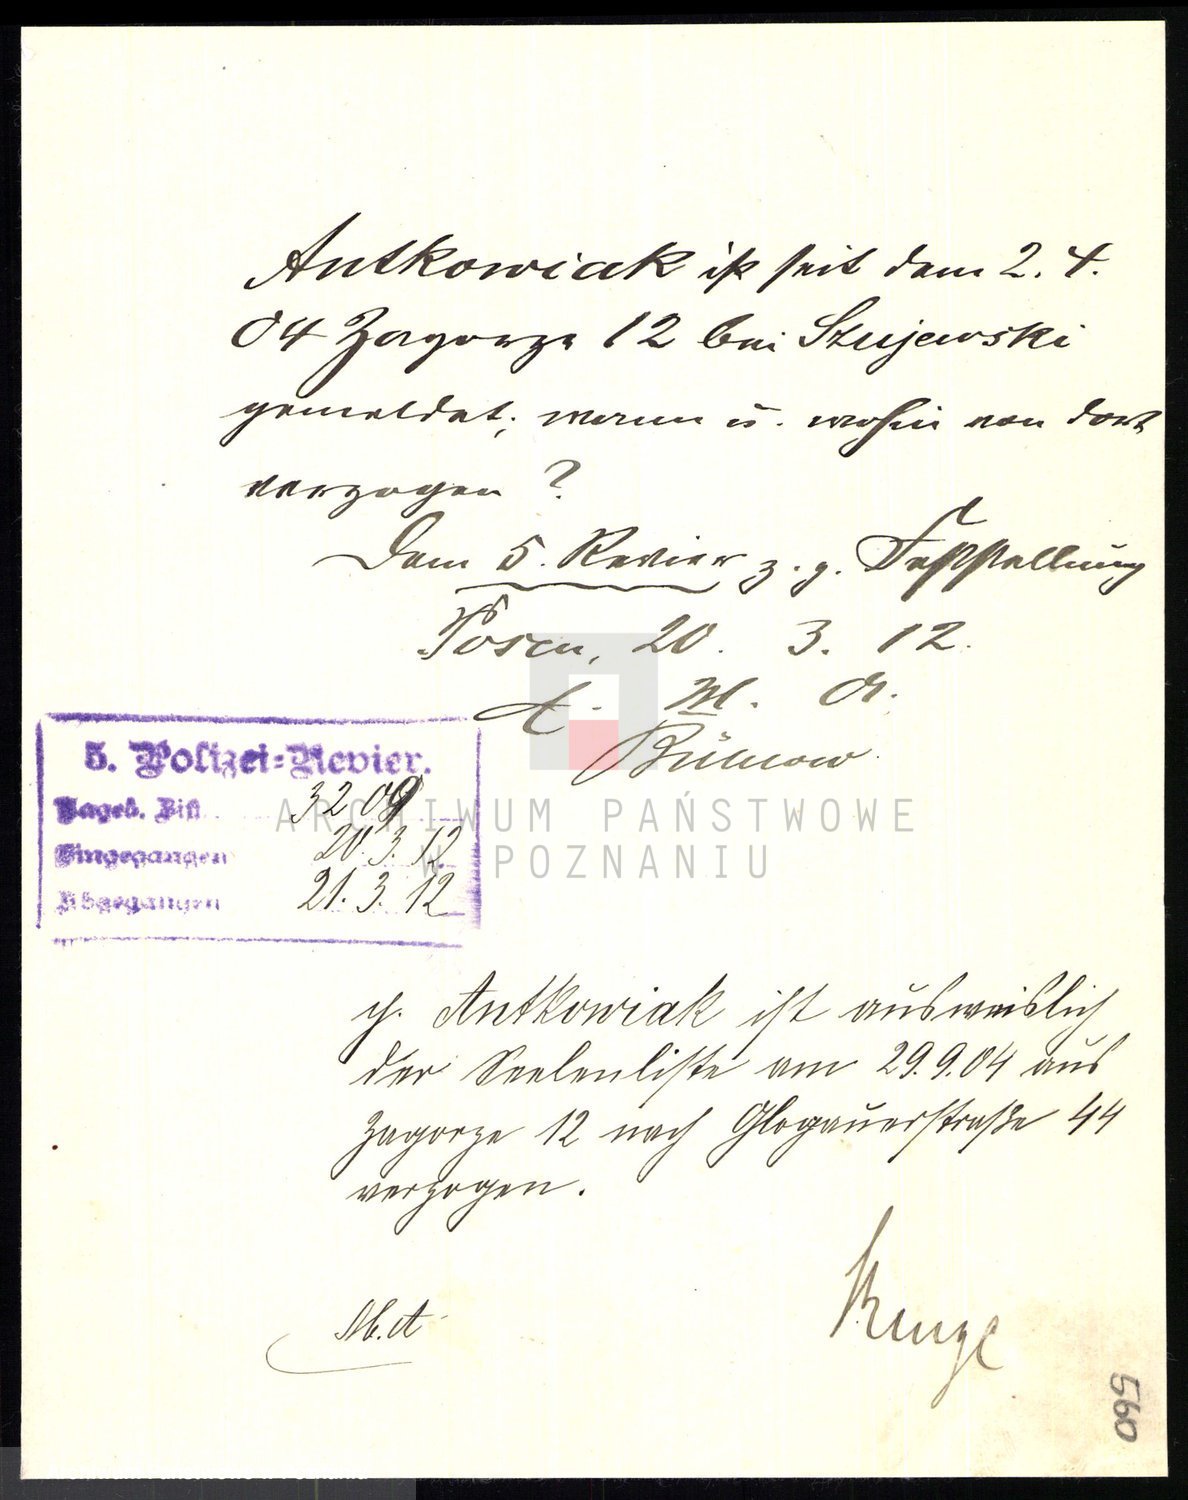 Antkowiak ist seit dem 2. 4.
04 Zagorze 12 bei Stujewski
gemeldet; wann u. wohin von dort
verzogen?
Dem 5. Revier z. g. Feststellung
Posen, 20. 3. 12.
E. M. A.
Bülow
5. Polizei-Revier.
Tageb. 3209
Eingegangen 20. 3. 12
Abgegangen 21. 3. 12
ARCHIWUM PAŃSTWOWE
W POZNANIU
p. Antkowiak ist ausweislich
der Seelenliste am 29.9.04 aus
Zagorze 12 nach Glogauerstraße 44
verzogen.
Kunze
M. A
560